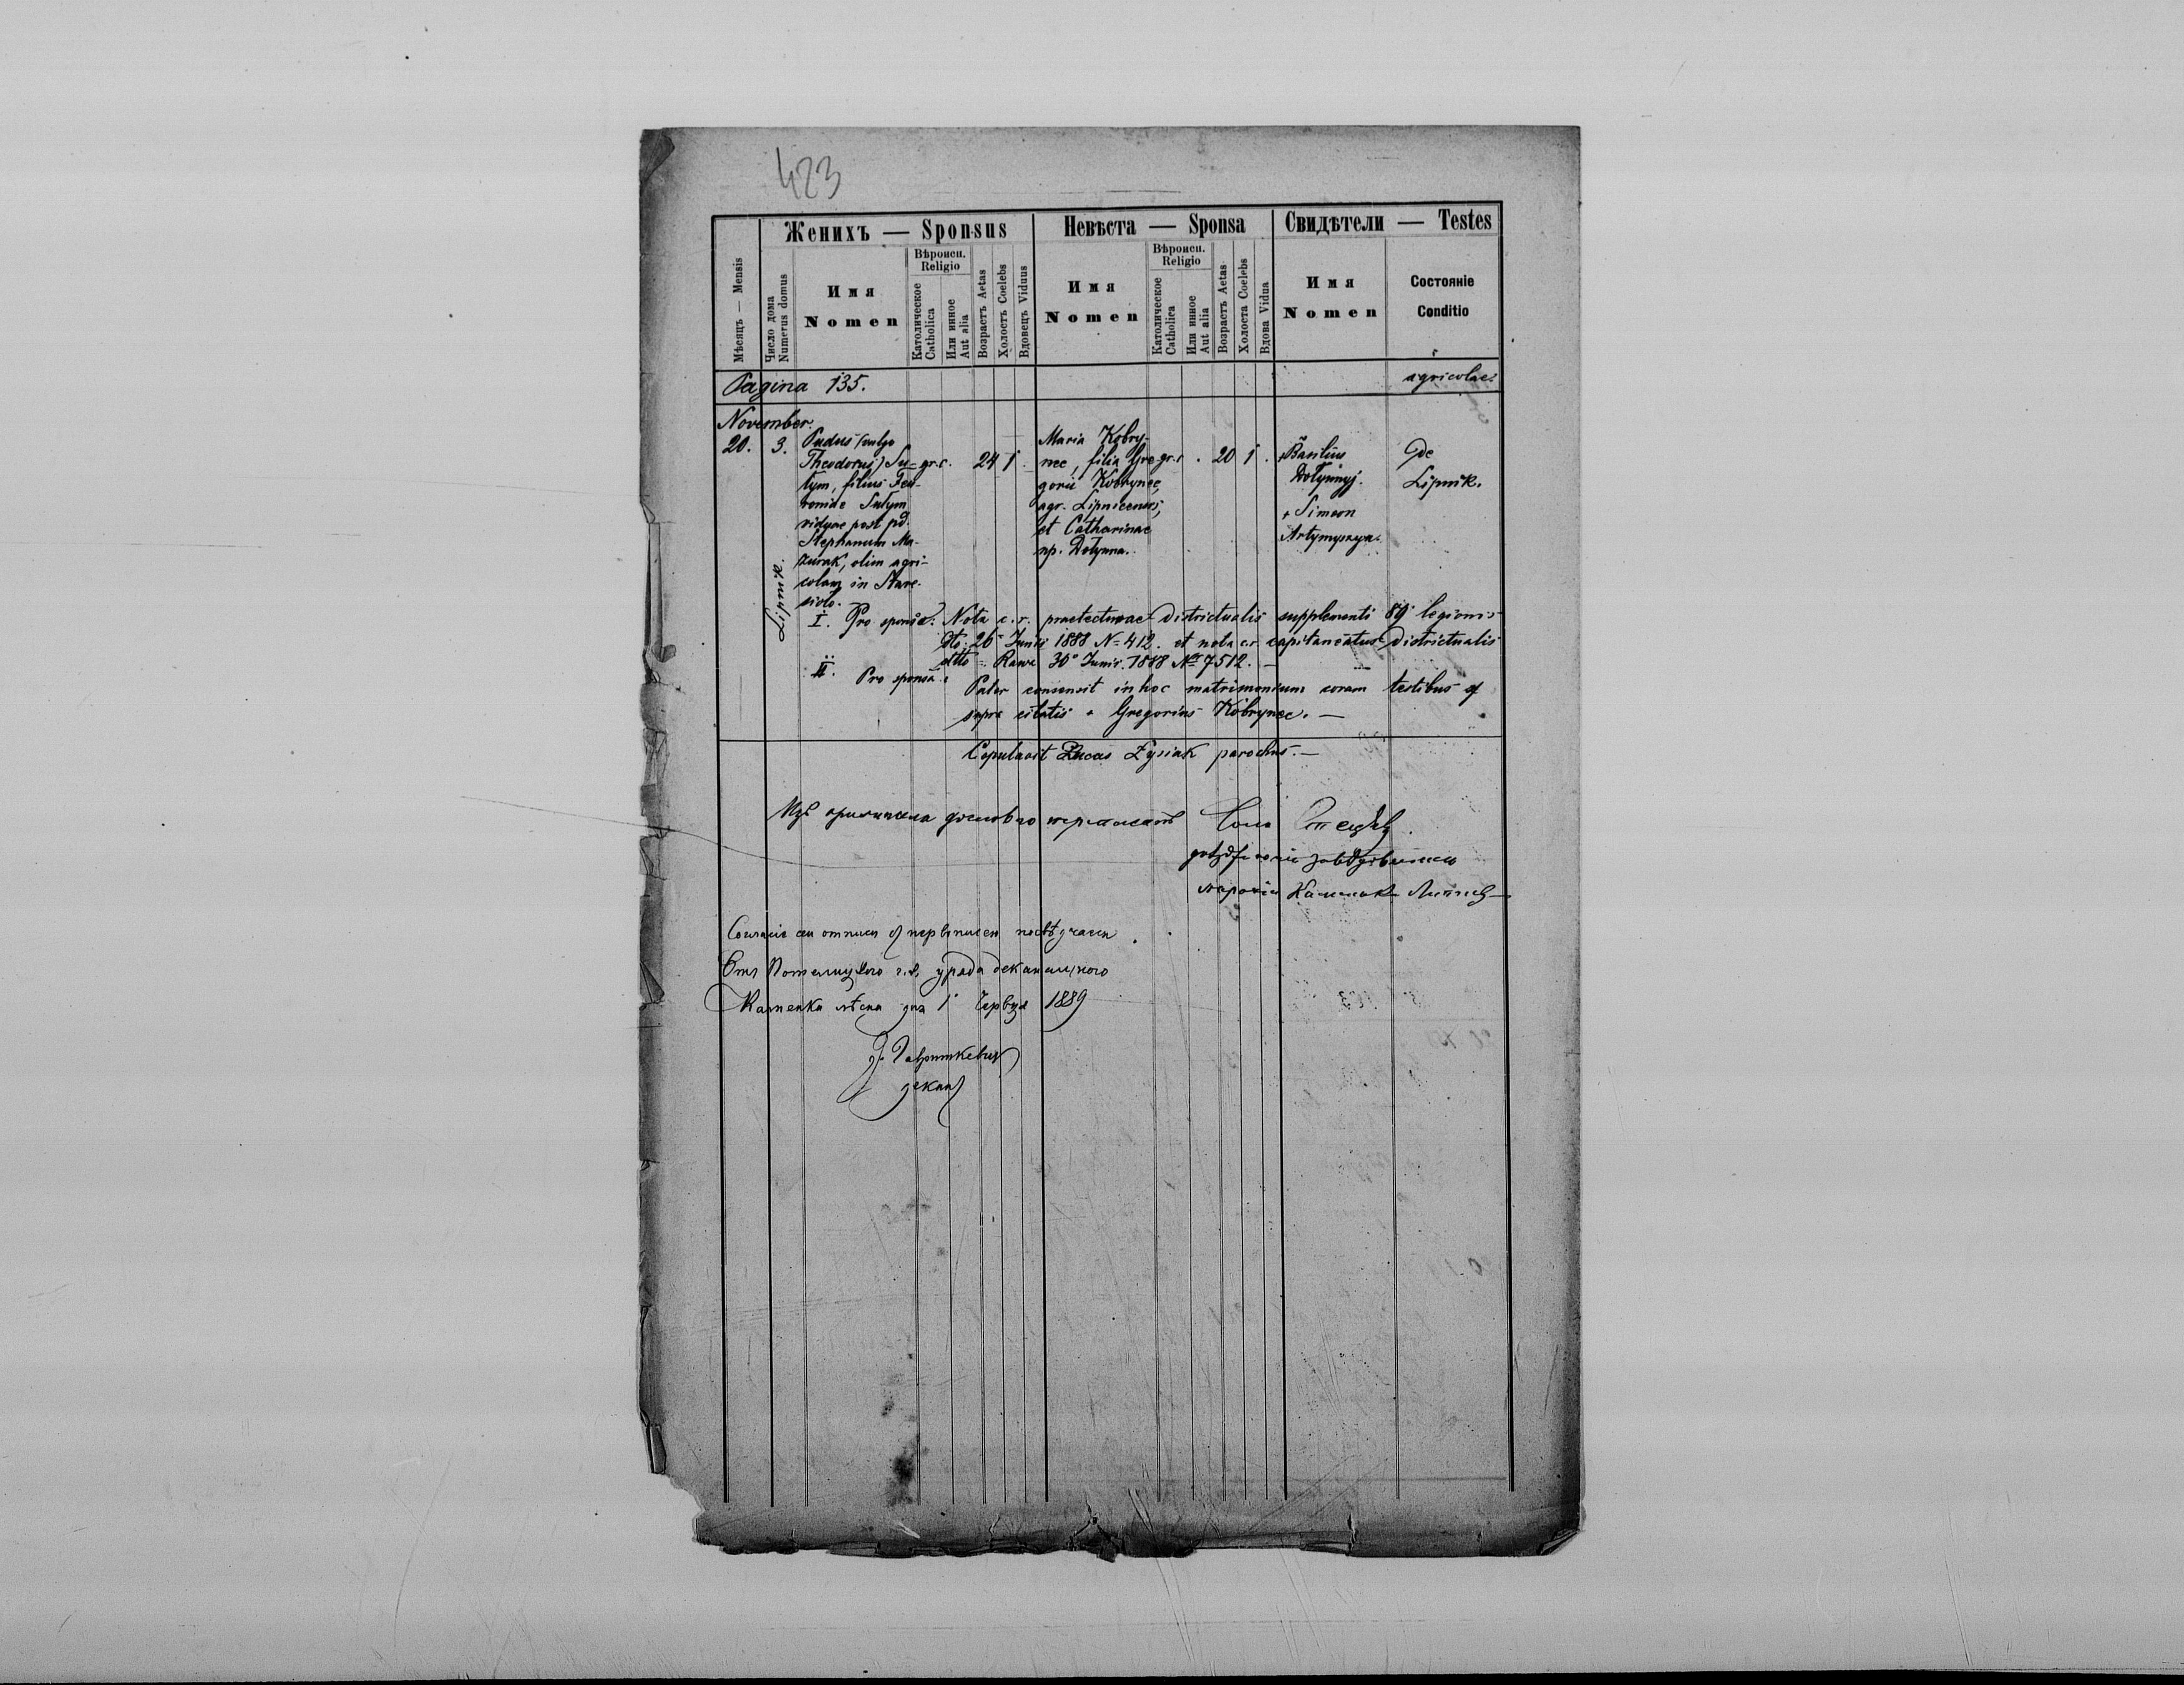 423
Женихъ — Sponsus Невѣста — Sponsa Свидѣтели — Testes
Мѣсяцъ — Mensis
Число дома Numerus domus
Имя Nomen
Вѣроисп. Religio
Католическое Catholica
Или инное Aut alia
Возрастъ Aetas
Холостъ Coelebs
Вдовецъ Viduus
Имя Nomen
Вѣроисп. Religio
Католическое Catholica
Или инное Aut alia
Возрастъ Aetas
Холоста Coelebs
Вдова Vidua
Имя Nomen
Состояніе Conditio
Pagina 135. agricolae
November.
20. 3.
Lipnik.
Theodorus) Su=
tym, filius Feu-
roniae Sutym
viduae post pd.
Stephanum Ma-
zurak, olim agri-
colam in Stare-
siolo.
gr. c. 24 1
Maria Kobry-
nec, filia Gre-
gorii Kobrynec,
agr. Lipnicensis,
et Catharinae
np. Dołynna.
gr. c. 20 1.
+ Basilius
Dołynnyj.
+ Simeon
Artymyszyn.
de
Lipnik.
I. Pro sponso: Nota c. r. praefecturae districtualis supplementi 89 legionis
dto 26 Junii 1888 N= 412. et nota c.r. capitaneatus districtualis
dtto = Rawa 30° Junii 1888 No 7512. —
II. Pro sponsa: Pater consensit in hoc matrimonium coram testibus
supra citatis + Gregorius Kobrynec. —
Copulavit Lucas Łysiak parochus. —
Изъ дословно
парохіи Каменка
Согласіе
Отъ г. к. уряда деканального
Каменка лѣсна дня 1 Червця 1889
декан